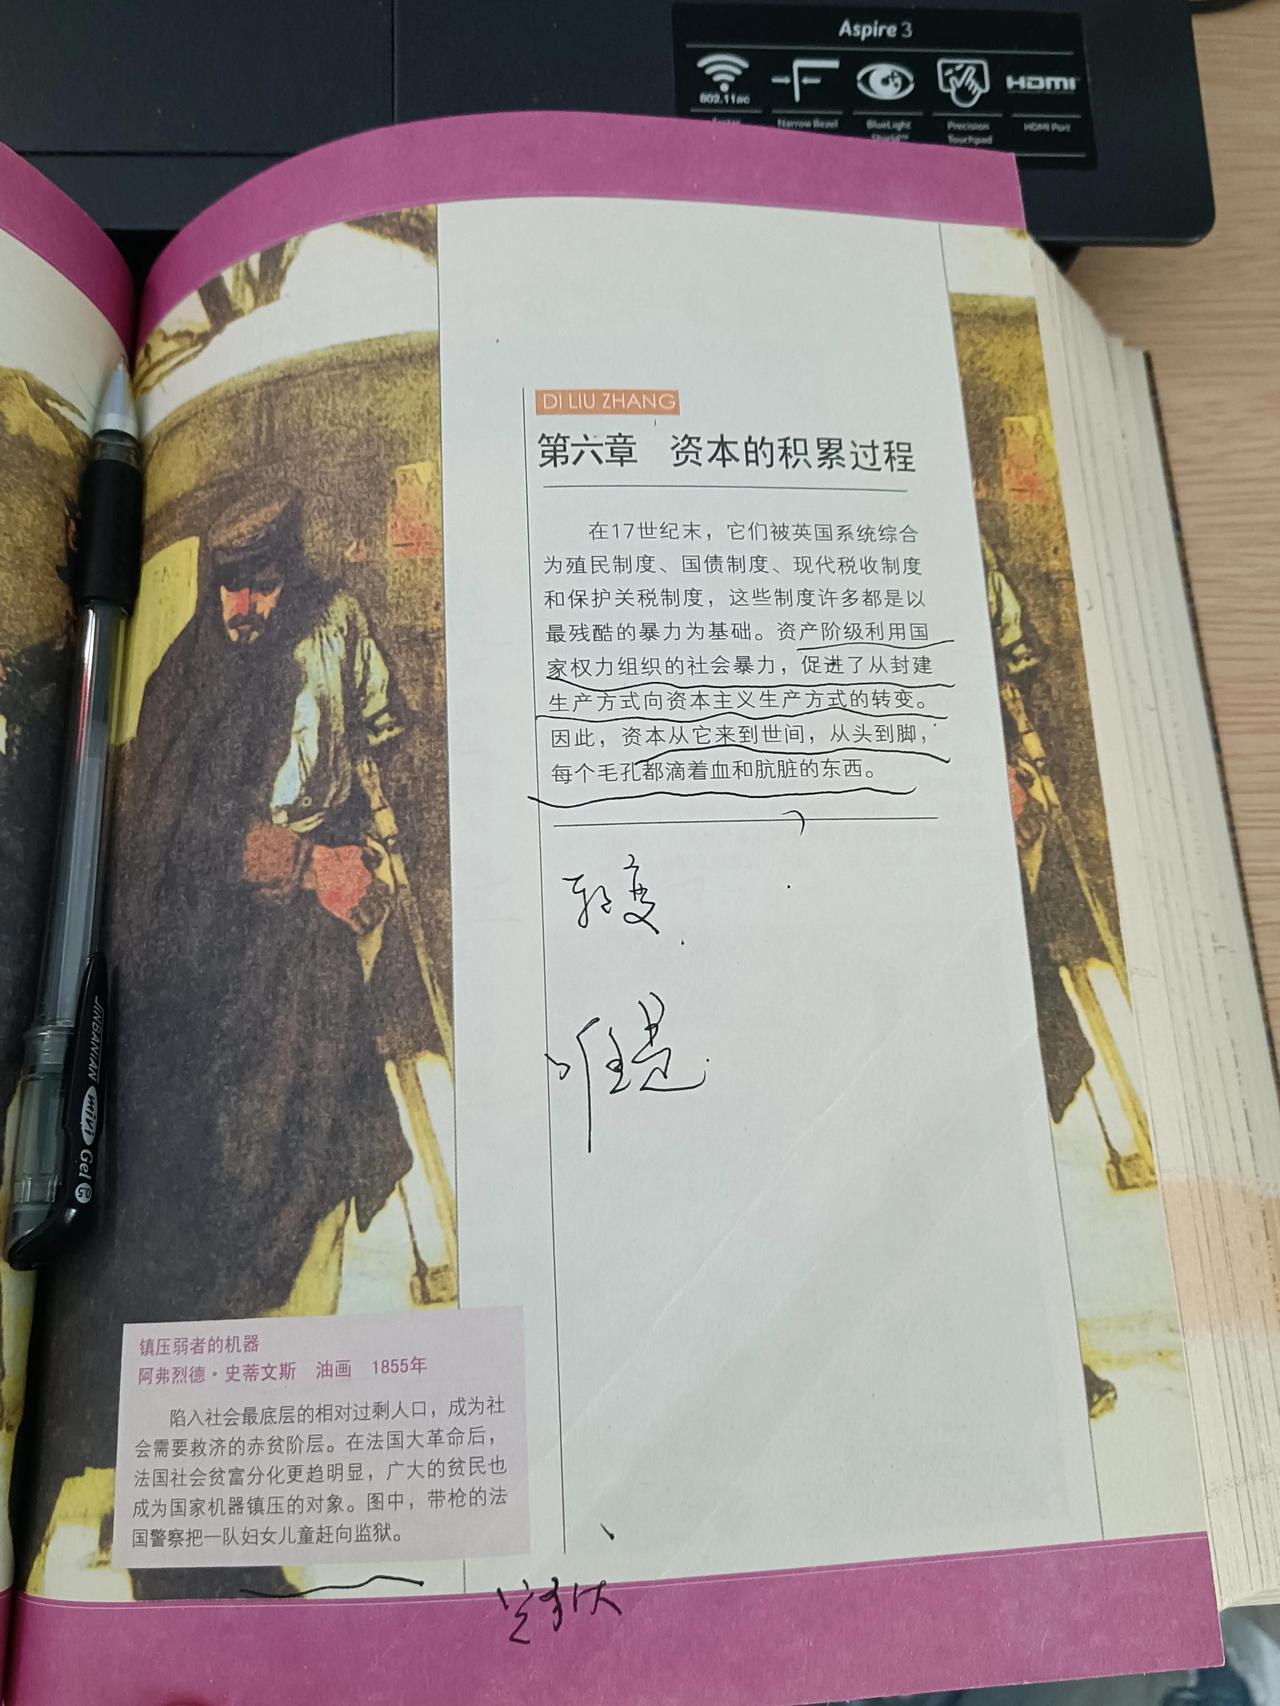 Aspire 3
802.11ac
HDMI
Narrow Bezel
BlueLight
Precision
Touchpad
HDMI Port
DI LIU ZHANG
第六章 资本的积累过程
在17世纪末，它们被英国系统综合
为殖民制度、国债制度、现代税收制度
和保护关税制度，这些制度许多都是以
最残酷的暴力为基础。资产阶级利用国
家权力组织的社会暴力，促进了从封建
生产方式向资本主义生产方式的转变。
因此，资本从它来到世间，从头到脚，
每个毛孔都滴着血和肮脏的东西。
转变
JINBANIAN mivi Gel 0.5
镇压弱者的机器
阿弗烈德·史蒂文斯 油画 1855年
陷入社会最底层的相对过剩人口，成为社
会需要救济的赤贫阶层。在法国大革命后，
法国社会贫富分化更趋明显，广大的贫民也
成为国家机器镇压的对象。图中，带枪的法
国警察把一队妇女儿童赶向监狱。